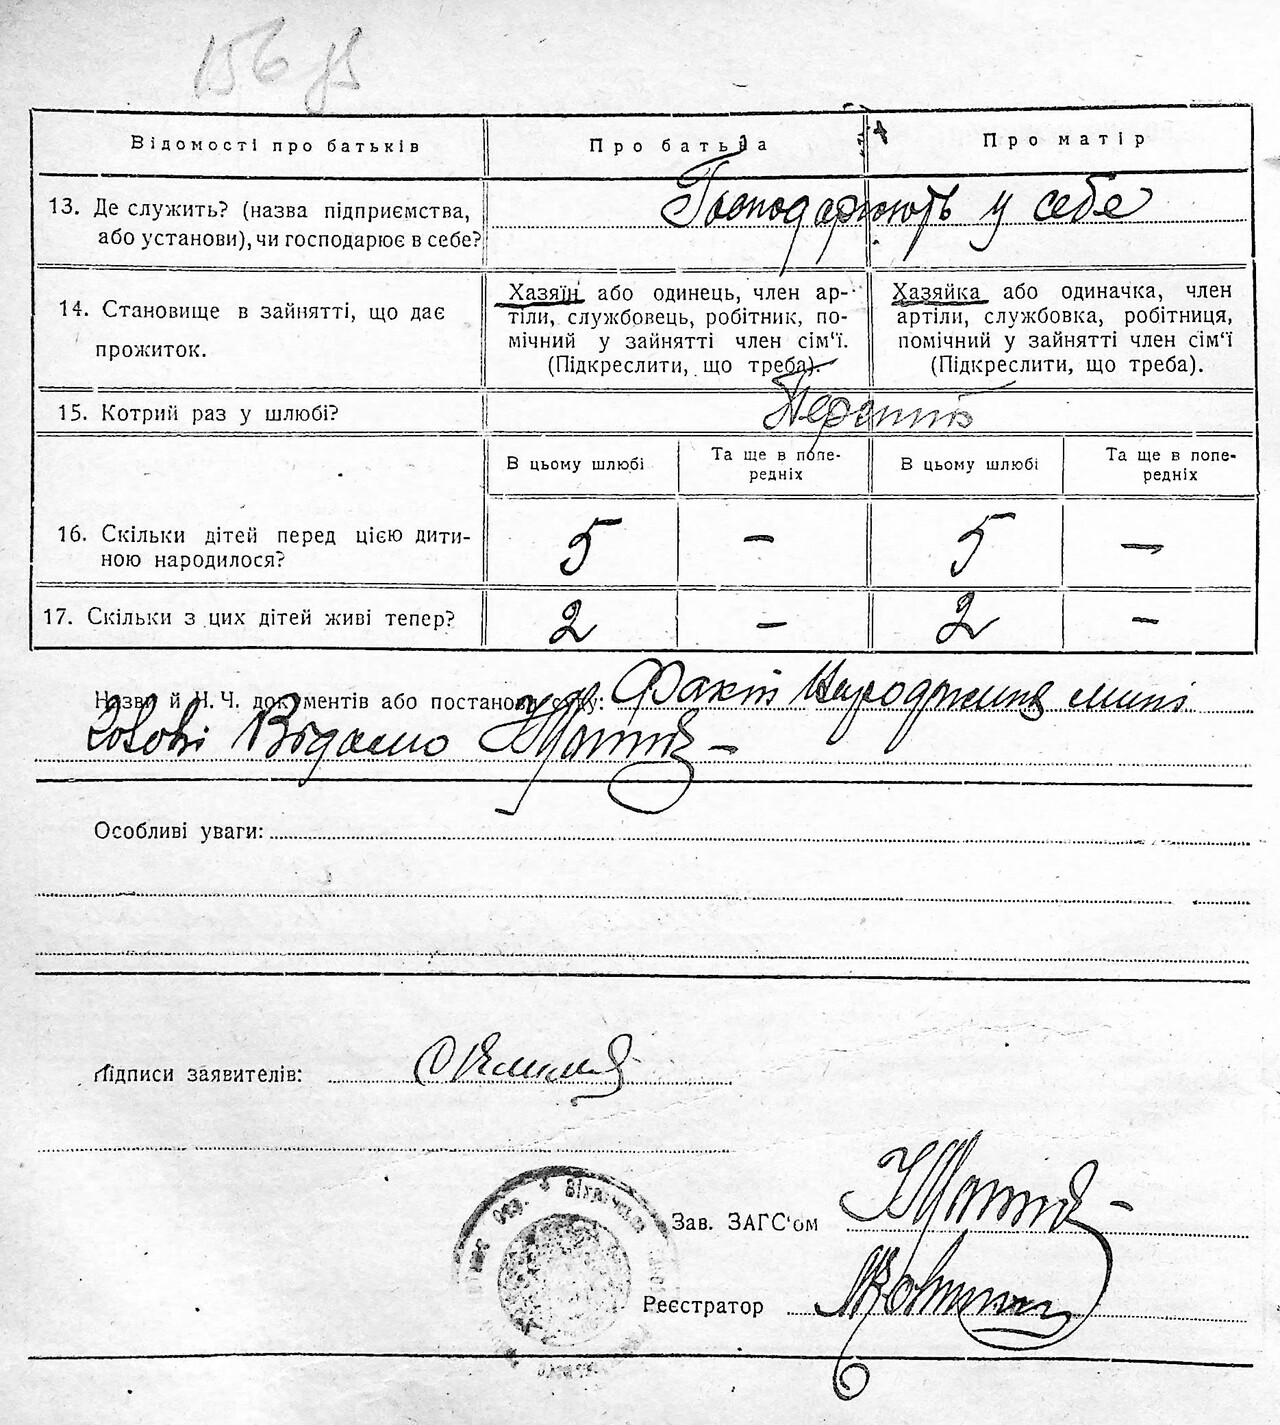 156
Відомості про батьків
Про батька
Про матір
13. Де служить? (назва підприємства,
або установи), чи господарює в себе?
Господарюють у себе
14. Становище в зайнятті, що дає
прожиток.
Хазяїн або одинець, член ар-
тіли, службовець, робітник, по-
мічний у зайнятті член сім'ї.
(Підкреслити, що треба).
Хазяйка або одиначка, член
артіли, службовка, робітниця,
помічний у зайнятті член сім'ї
(Підкреслити, що треба).
15. Котрий раз у шлюбі?
В цьому шлюбі
Та ще в попе-
редніх
В цьому шлюбі
Та ще в попе-
редніх
16. Скільки дітей перед цією дити-
ною народилося?
5 — 5 —
17. Скільки з цих дітей живі тепер?
2 — 2 —
Назви й Ч. Ч. документів або постанови суду: Факт народження мині
Відомо
Особливі уваги:
Підписи заявителів:
Зав. ЗАГС'ом
Реєстратор